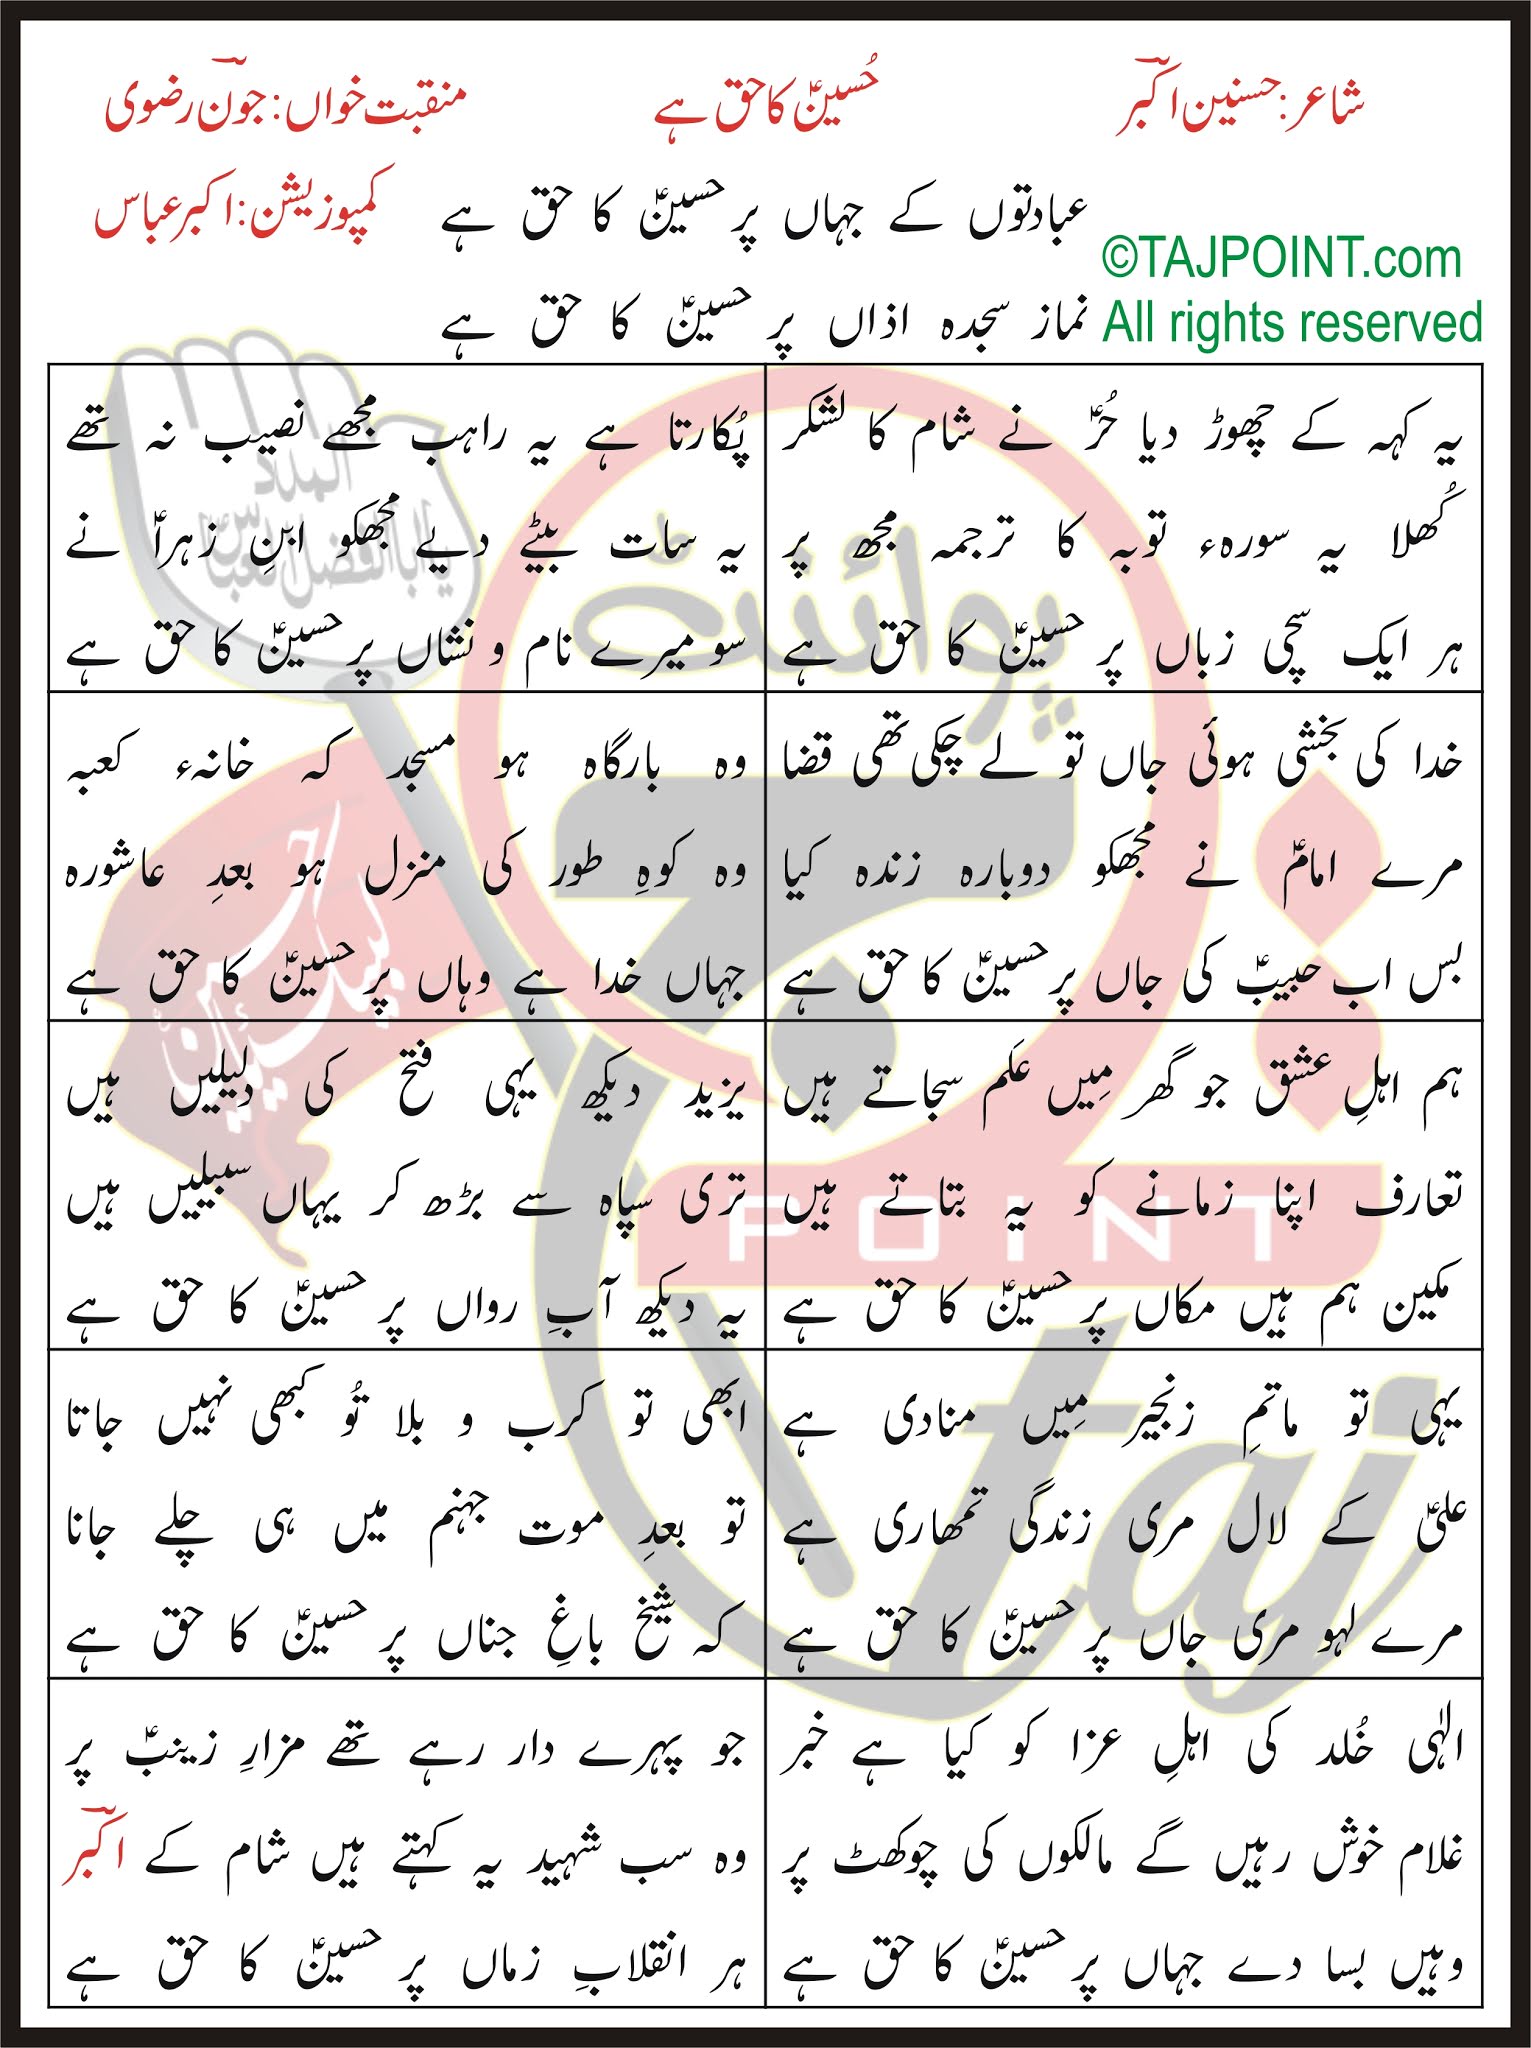 شاعر: حسنین اکبرؔ
حُسینؑ کا حق ہے
منقبت خواں: جونؔ رضوی
کمپوزیشن: اکبر عباس
عبادتوں کے جہاں پر حسینؑ کا حق ہے
نماز سجدہ اذاں پر حسینؑ کا حق ہے
©TAJPOINT.com
All rights reserved
یہ کہہ کے چھوڑ دیا حُرؑ نے شام کا لشکر
کُھلا یہ سورہء توبہ کا ترجمہ مجھ پر
ہر ایک سچی زباں پر حسینؑ کا حق ہے
پُکارتا ہے یہ راہب مجھے نصیب نہ تھے
یہ سات بیٹے دیے مجھکو ابنِ زہراؑ نے
سو میرے نام و نشاں پر حسینؑ کا حق ہے
خدا کی بخشی ہوئی جاں تو لے چکی تھی قضا
مرے امامؑ نے مجھکو دوبارہ زندہ کیا
بس اب حبیبؑ کی جاں پر حسینؑ کا حق ہے
وہ بارگاہ ہو مسجد کہ خانہء کعبہ
وہ کوہِ طور کی منزل ہو بعدِ عاشورہ
جہاں خدا ہے وہاں پر حسینؑ کا حق ہے
ہم اہلِ عشق جو گھر مِیں عَلم سجاتے ہیں
تعارف اپنا زمانے کو یہ بتاتے ہیں
مکین ہم ہیں مکاں پر حسینؑ کا حق ہے
یزید دیکھ یہی فتح کی دلیلیں ہیں
تری سپاہ سے بڑھ کر یہاں سبیلیں ہیں
یہ دیکھ آبِ رواں پر حسینؑ کا حق ہے
یہی تو ماتمِ زنجیر مِیں منادی ہے
علیؑ کے لال مری زندگی تمھاری ہے
مرے لہو مری جاں پر حسینؑ کا حق ہے
ابھی تو کرب و بلا تُو کبھی نہیں جاتا
تو بعدِ موت جہنم میں ہی چلے جانا
کہ شیخ باغِ جناں پر حسینؑ کا حق ہے
الٰہی خُلد کی اہلِ عزا کو کیا ہے خبر
غلام خوش رہیں گے مالکوں کی چوکھٹ پر
وہیں بسا دے جہاں پر حسینؑ کا حق ہے
جو پہرے دار رہے تھے مزارِ زینبؑ پر
وہ سب شہید یہ کہتے ہیں شام کے اکبرؔ
ہر انقلابِ زماں پر حسینؑ کا حق ہے
پوائنٹ
POINT
taj
لبیک یا حسین